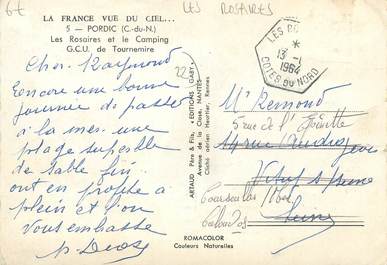 6€
LES ROSAIRES
LA FRANCE VUE DU CIEL...
5 — PORDIC (C.-du-N.)
Les Rosaires et le Camping
G.C.U. de Tournemire
Cher Raymond
Encore une bonne
journée de passée
à la mer une
plage superbe
de sable fin
ont en profite à
plein et l'on
vous embasse
22
ARTAUD Père & Fils, "EDITIONS GABY"
Avenue de la Close, NANTES
Cliché aérien Heurtier Rennes
LES RO
13 -
1964
COTES DU NORD
Mr Remond
5 rue de l'
Vitry s/ Seine
Courseulles s/Mer
Calvados
Seine
ROMACOLOR
Couleurs Naturelles